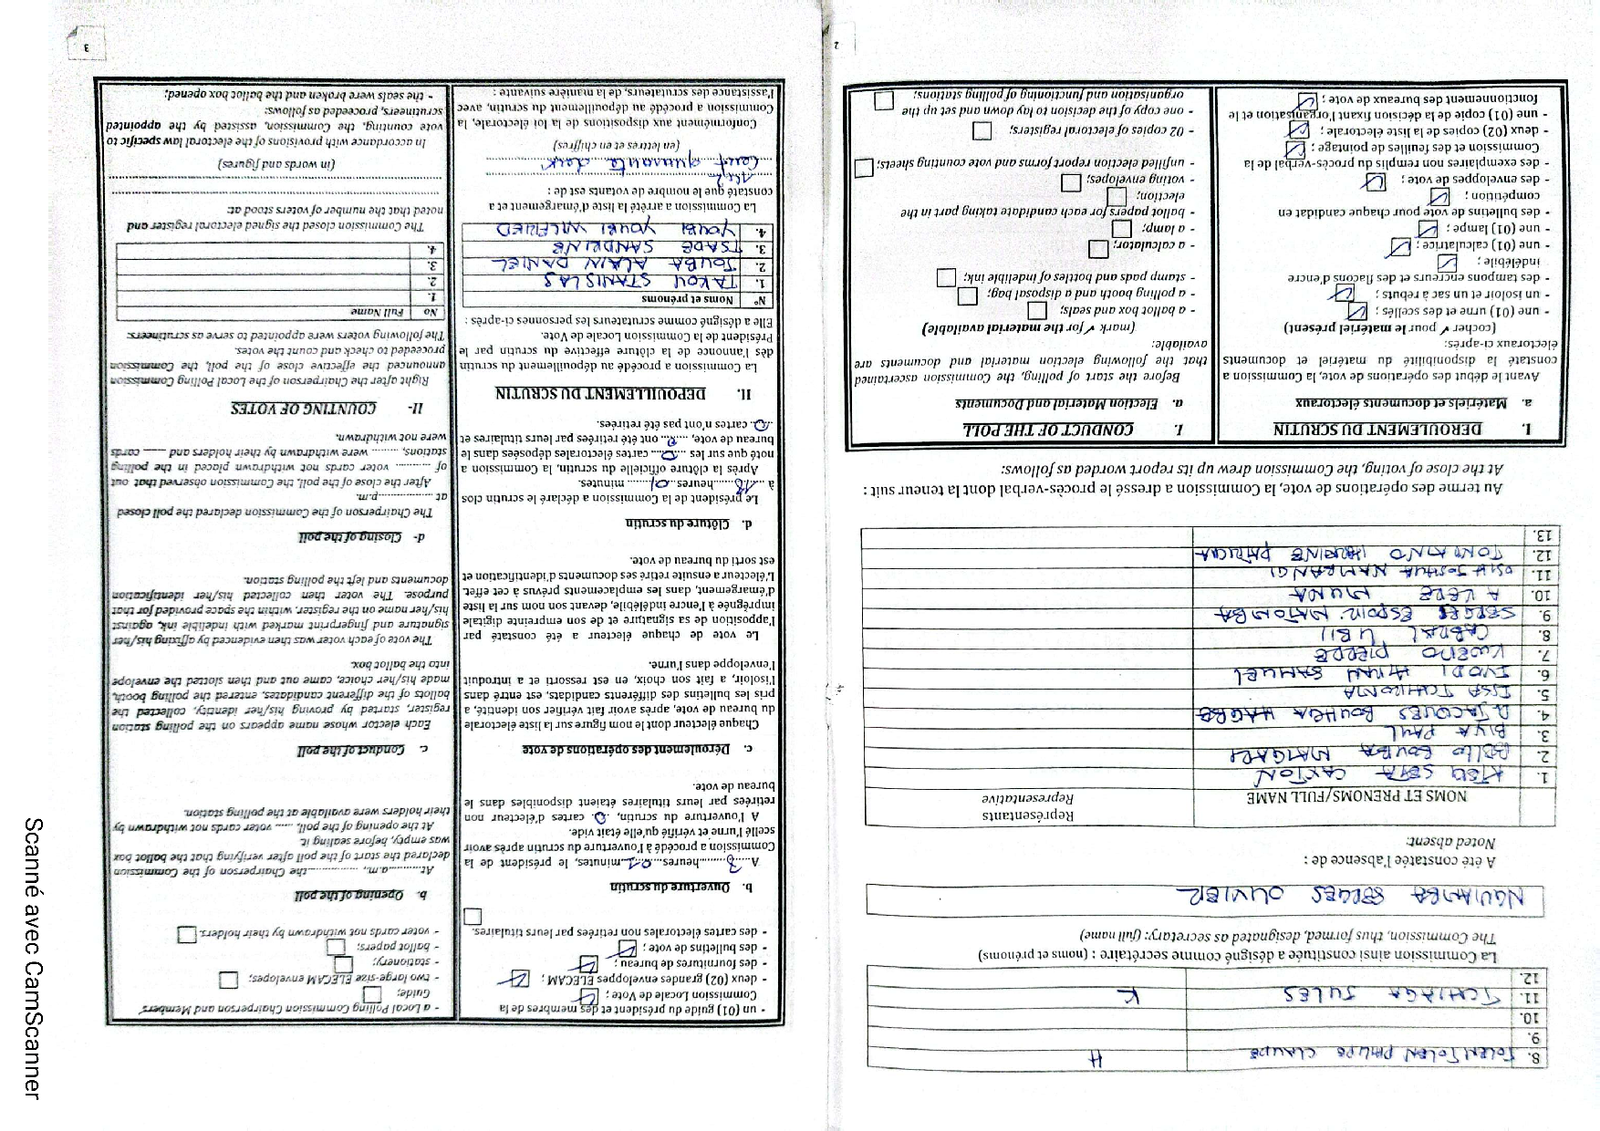 8. TOLEN TOLEN PHILIPPE CLAUDE H
9.
10.
11. TCHIAGA JULES K
12.
La Commission ainsi constituée a désigné comme secrétaire : (noms et prénoms)
The Commission, thus formed, designated as secretary: (full name)
NGUIAMBA SERGES OLIVIER
A été constatée l'absence de :
Noted absent:
NOMS ET PRENOMS/FULL NAME
Représentants
Representative
1. ATEKI SETA CAXTON
2. BELLO BOUBA MAIGARI
3. BIYA PAUL
4. JACQUES BOUHGA HAGBE
5. ISSA TCHIROMA
6. IYODI HIRAM SAMUEL
7. KWEMO PIERRE
8. CABRAL LIBII
9. SERGES ESPOIR MATOMBA
10. AKERE MUNA
11. OSIH JOSHUA NAMBANGI
12. TOMAINO HERMINE PATRICIA
13.
Au terme des opérations de vote, la Commission a dressé le procès-verbal dont la teneur suit :
At the close of voting, the Commission drew up its report worked as follows:
I. DEROULEMENT DU SCRUTIN
a. Matériels et documents électoraux
Avant le début des opérations de vote, la Commission a
constaté la disponibilité du matériel et documents
électoraux ci-après:
(cocher ✓ pour le matériel présent)
- une (01) urne et des scellés ;
- un isoloir et un sac à rebuts ;
- des tampons encreurs et des flacons d'encre
indélébile ;
- une (01) calculatrice ;
- une (01) lampe ;
- des bulletins de vote pour chaque candidat en
compétition ;
- des enveloppes de vote ;
- des exemplaires non remplis du procès-verbal de la
Commission et des feuilles de pointage ;
- deux (02) copies de la liste électorale ;
- une (01) copie de la décision fixant l'organisation et le
fonctionnement des bureaux de vote ;
I. CONDUCT OF THE POLL
a. Election Material and Documents
Before the start of polling, the Commission ascertained
that the following election material and documents are
available:
(mark ✓ for the material available)
- a ballot box and seals;
- a polling booth and a disposal bag;
- stamp pads and bottles of indelible ink;
- a calculator;
- a lamp;
- ballot papers for each candidate taking part in the
election;
- voting envelopes;
- unfilled election report forms and vote counting sheets;
- 02 copies of electoral registers;
- one copy of the decision to lay down and set up the
organisation and functioning of polling stations;
2
- un (01) guide du président et des membres de la
Commission Locale de Vote ;
- deux (02) grandes enveloppes ELECAM ;
- des fournitures de bureau ;
- des bulletins de vote ;
- des cartes électorales non retirées par leurs titulaires.
b. Ouverture du scrutin
A ...8...heures...01...minutes, le président de la
Commission a procédé à l'ouverture du scrutin après avoir
scellé l'urne et vérifié qu'elle était vide.
A l'ouverture du scrutin, ..0.. cartes d'électeur non
retirées par leurs titulaires étaient disponibles dans le
bureau de vote.
c. Déroulement des opérations de vote
Chaque électeur dont le nom figure sur la liste électorale
du bureau de vote, après avoir fait vérifier son identité, a
pris les bulletins des différents candidats, est entré dans
l'isoloir, a fait son choix, en est ressorti et a introduit
l'enveloppe dans l'urne.
Le vote de chaque électeur a été constaté par
l'apposition de sa signature et de son empreinte digitale
imprégnée à l'encre indélébile, devant son nom sur la liste
d'émargement, dans les emplacements prévus à cet effet.
L'électeur a ensuite retiré ses documents d'identification et
est sorti du bureau de vote.
d. Clôture du scrutin
Le président de la Commission a déclaré le scrutin clos
à ...18...heures...01...minutes.
Après la clôture officielle du scrutin, la Commission a
noté que sur les ...0... cartes électorales déposées dans le
bureau de vote, ...0... ont été retirées par leurs titulaires et
..0.. cartes n'ont pas été retirées.
II. DEPOUILLEMENT DU SCRUTIN
La Commission a procédé au dépouillement du scrutin
dès l'annonce de la clôture effective du scrutin par le
Président de la Commission Locale de Vote.
Elle a désigné comme scrutateurs les personnes ci-après :
N° Noms et prénoms
1. TAKOU STANISLAS
2. JOUBA ALAIN DANIEL
3. TSADE SANDRINE
4. YOUBI YOUBI WILFRIED
La Commission a arrêté la liste d'émargement et a
constaté que le nombre de votants est de :
142
cent quarante deux
(en lettres et en chiffres)
Conformément aux dispositions de la loi électorale, la
Commission a procédé au dépouillement du scrutin, avec
l'assistance des scrutateurs, de la manière suivante :
- a Local Polling Commission Chairperson and Members'
Guide;
- two large-size ELECAM envelopes;
- stationery;
- ballot papers;
- voter cards not withdrawn by their holders.
b. Opening of the poll
At..........a.m., ............the Chairperson of the Commission
declared the start of the poll after verifying that the ballot box
was empty, before sealing it.
At the opening of the poll, ...... voter cards not withdrawn by
their holders were available at the polling station.
c. Conduct of the poll
Each elector whose name appears on the polling station
register, started by proving his/her identity, collected the
ballots of the different candidates, entered the polling booth,
made his/her choice, came out and then slotted the envelope
into the ballot box.
The vote of each voter was then evidenced by affixing his/her
signature and fingerprint marked with indelible ink, against
his/her name on the register, within the space provided for that
purpose. The voter then collected his/her identification
documents and left the polling station.
d- Closing of the poll
The Chairperson of the Commission declared the poll closed
at ...................p.m.
After the close of the poll, the Commission observed that out
of .......... voter cards not withdrawn placed in the polling
stations, ........ were withdrawn by their holders and ------ cards
were not withdrawn.
II- COUNTING OF VOTES
Right after the Chairperson of the Local Polling Commission
announced the effective close of the poll, the Commission
proceeded to check and count the votes.
The following voters were appointed to serve as scrutineers:
No Full Name
1.
2.
3.
4.
The Commission closed the signed electoral register and
noted that the number of voters stood at:
(in words and figures)
In accordance with provisions of the electoral law specific to
vote counting, the Commission, assisted by the appointed
scrutineers, proceeded as follows:
- the seals were broken and the ballot box opened;
3
Scanné avec CamScanner